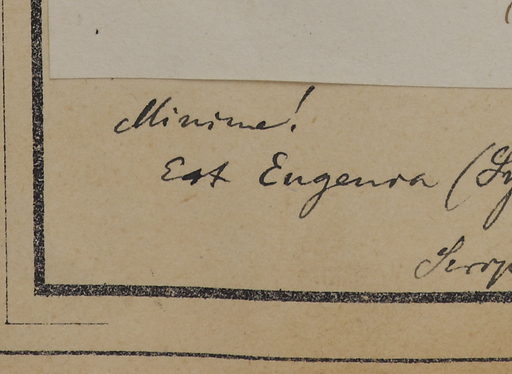 Minime!
Est Eugenia (Sy
Scrip